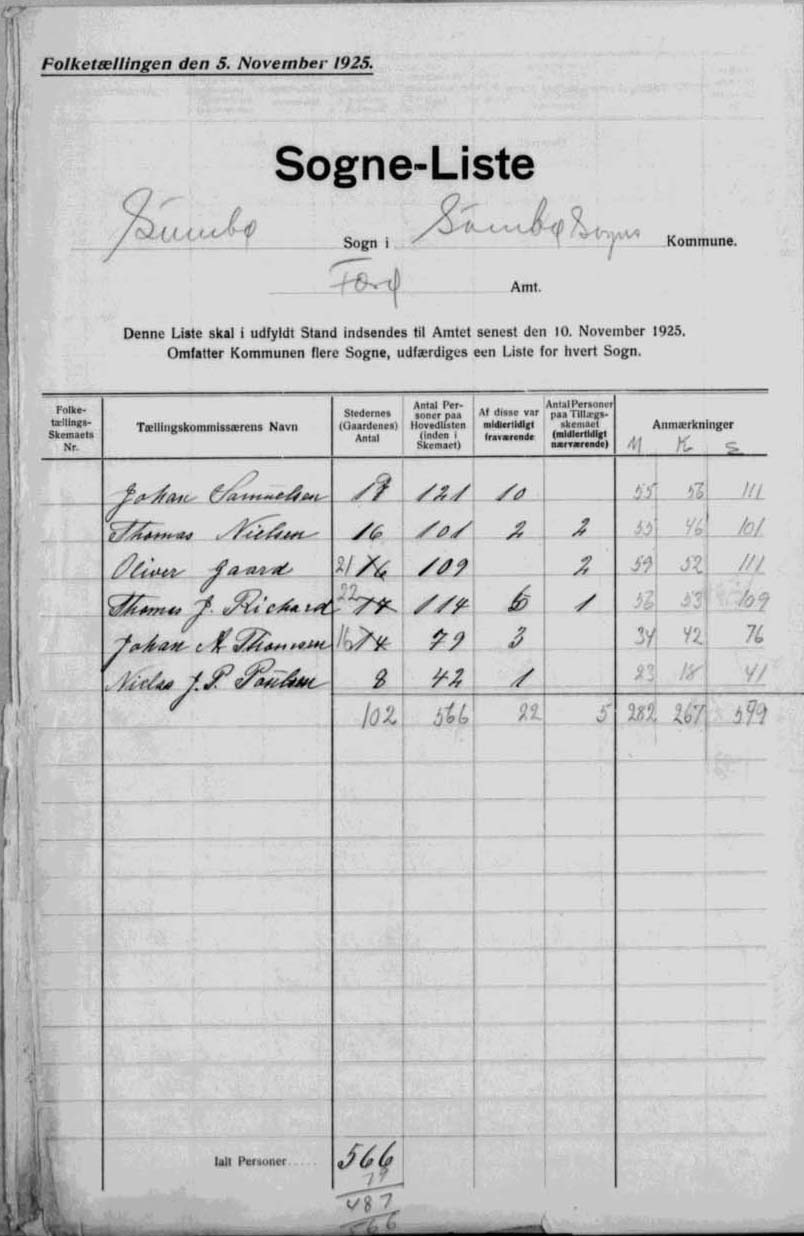 Folketællingen den 5. November 1925.
Sogne-Liste
Sumbø Sogn i Sumbø Sogns Kommune.
Færø Amt.
Denne Liste skal i udfyldt Stand indsendes til Amtet senest den 10. November 1925.
Omfatter Kommunen flere Sogne, udfærdiges een Liste for hvert Sogn.
Folke-tællings-Skemaets Nr. Tællingskommissærens Navn Stedernes (Gaardenes) Antal Antal Personer paa Hovedlisten (inden i Skemaet) Af disse var midlertidigt fraværende Antal Personer paa Tillægs-skemaet (midlertidigt nærværende) Anmærkninger
M K S
Johan Samuelsen 121 10 55 56 111
Thomas Nielsen 16 101 2 2 55 46 101
Oliver Gaard 21 16 109 2 59 52 111
Thomas J. Richard 22 14 114 6 1 56 53 109
Johan A. Thomsen 16 14 79 3 34 42 76
Niclas J. P. Poulsen 8 42 1 23 18 41
102 566 22 5 282 267 549
Ialt Personer..... 566
79
487
566